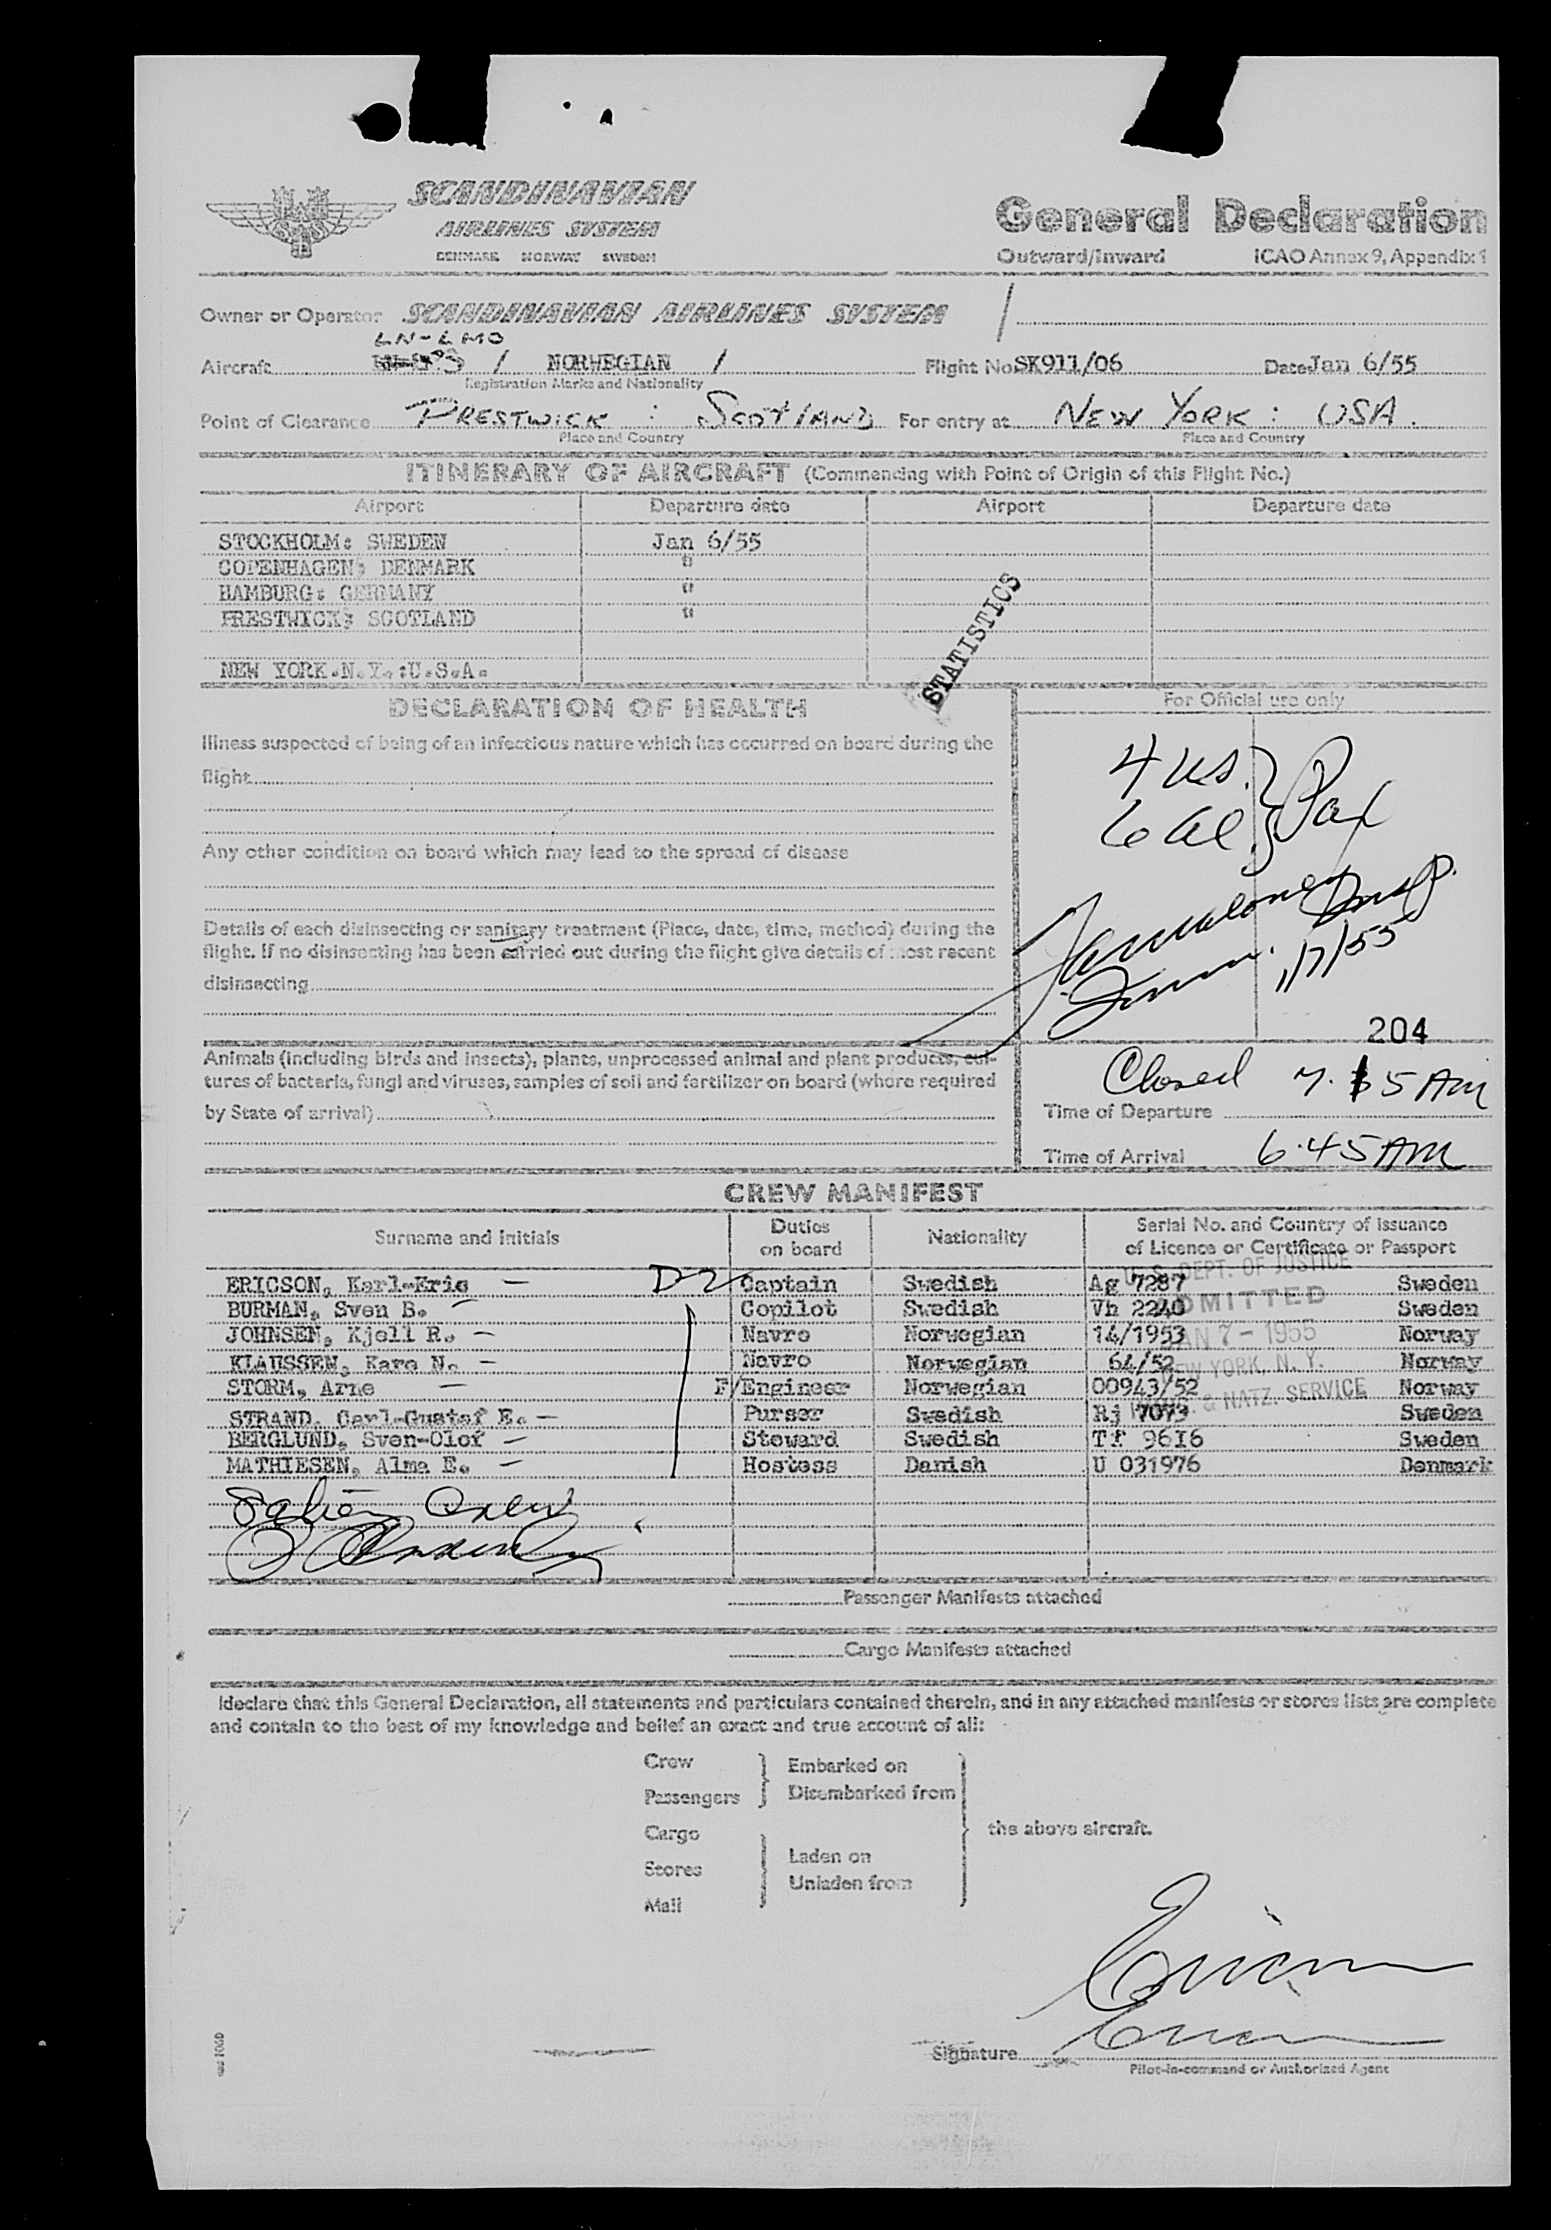 SCANDINAVIAN
AIRLINES SYSTEM
DENMARK NORWAY SWEDEN
General Declaration
Outward/Inward ICAO Annex 9, Appendix 1
Owner or Operator SCANDINAVIAN AIRLINES SYSTEM /
LN-LMO
Aircraft / NORWEGIAN / Flight No SK911/06 Date Jan 6/55
Registration Marks and Nationality
Point of Clearance PRESTWICK : SCOTLAND For entry at NEW YORK : USA.
Place and Country Place and Country
ITINERARY OF AIRCRAFT (Commencing with Point of Origin of this Flight No.)
Airport Departure date Airport Departure date
STOCKHOLM: SWEDEN Jan 6/55
COPENHAGEN: DENMARK "
HAMBURG: GERMANY "
PRESTWICK: SCOTLAND "
NEW YORK.N.Y.:U.S.A.
STATISTICS
DECLARATION OF HEALTH
For Official use only
Illness suspected of being of an infectious nature which has occurred on board during the
flight
Any other condition on board which may lead to the spread of disease
Details of each disinsecting or sanitary treatment (Place, date, time, method) during the
flight. If no disinsecting has been carried out during the flight give details of most recent
disinsecting
4 US.
6 al. } Pax
Insp.
1/7/55
204
Animals (including birds and insects), plants, unprocessed animal and plant products, cul-
tures of bacteria, fungi and viruses, samples of soil and fertilizer on board (where required
by State of arrival)
Closed 7.15 AM
Time of Departure
Time of Arrival 6.45 AM
CREW MANIFEST
Surname and Initials Duties on board Nationality Serial No. and Country of Issuance of Licence or Certificate or Passport
ERICSON, Karl-Eric — D2 Captain Swedish Ag 7287 Sweden
BURMAN, Sven B. — Copilot Swedish Vh 2240 Sweden
JOHNSEN, Kjell R. — Navro Norwegian 14/1953 Norway
KLAUSSEN, Kare N. — Navro Norwegian 64/52 Norway
STORM, Arne — F/Engineer Norwegian 00943/52 Norway
STRAND, Carl-Gustaf E. — Purser Swedish Rj 7073 Sweden
BERGLUND, Sven-Olof — Steward Swedish Tf 9616 Sweden
MATHIESEN, Alma E. — Hostess Danish U 031976 Denmark
U. S. DEPT. OF JUSTICE
ADMITTED
JAN 7 - 1955
NEW YORK, N. Y.
& NATZ. SERVICE
Crew
Passenger Manifests attached
Cargo Manifests attached
I declare that this General Declaration, all statements and particulars contained therein, and in any attached manifests or stores lists are complete
and contain to the best of my knowledge and belief an exact and true account of all:
Crew
Passengers
Embarked on
Disembarked from
Cargo
Stores
Mail
Laden on
Unladen from
the above aircraft.
Signature
Pilot-in-command or Authorized Agent